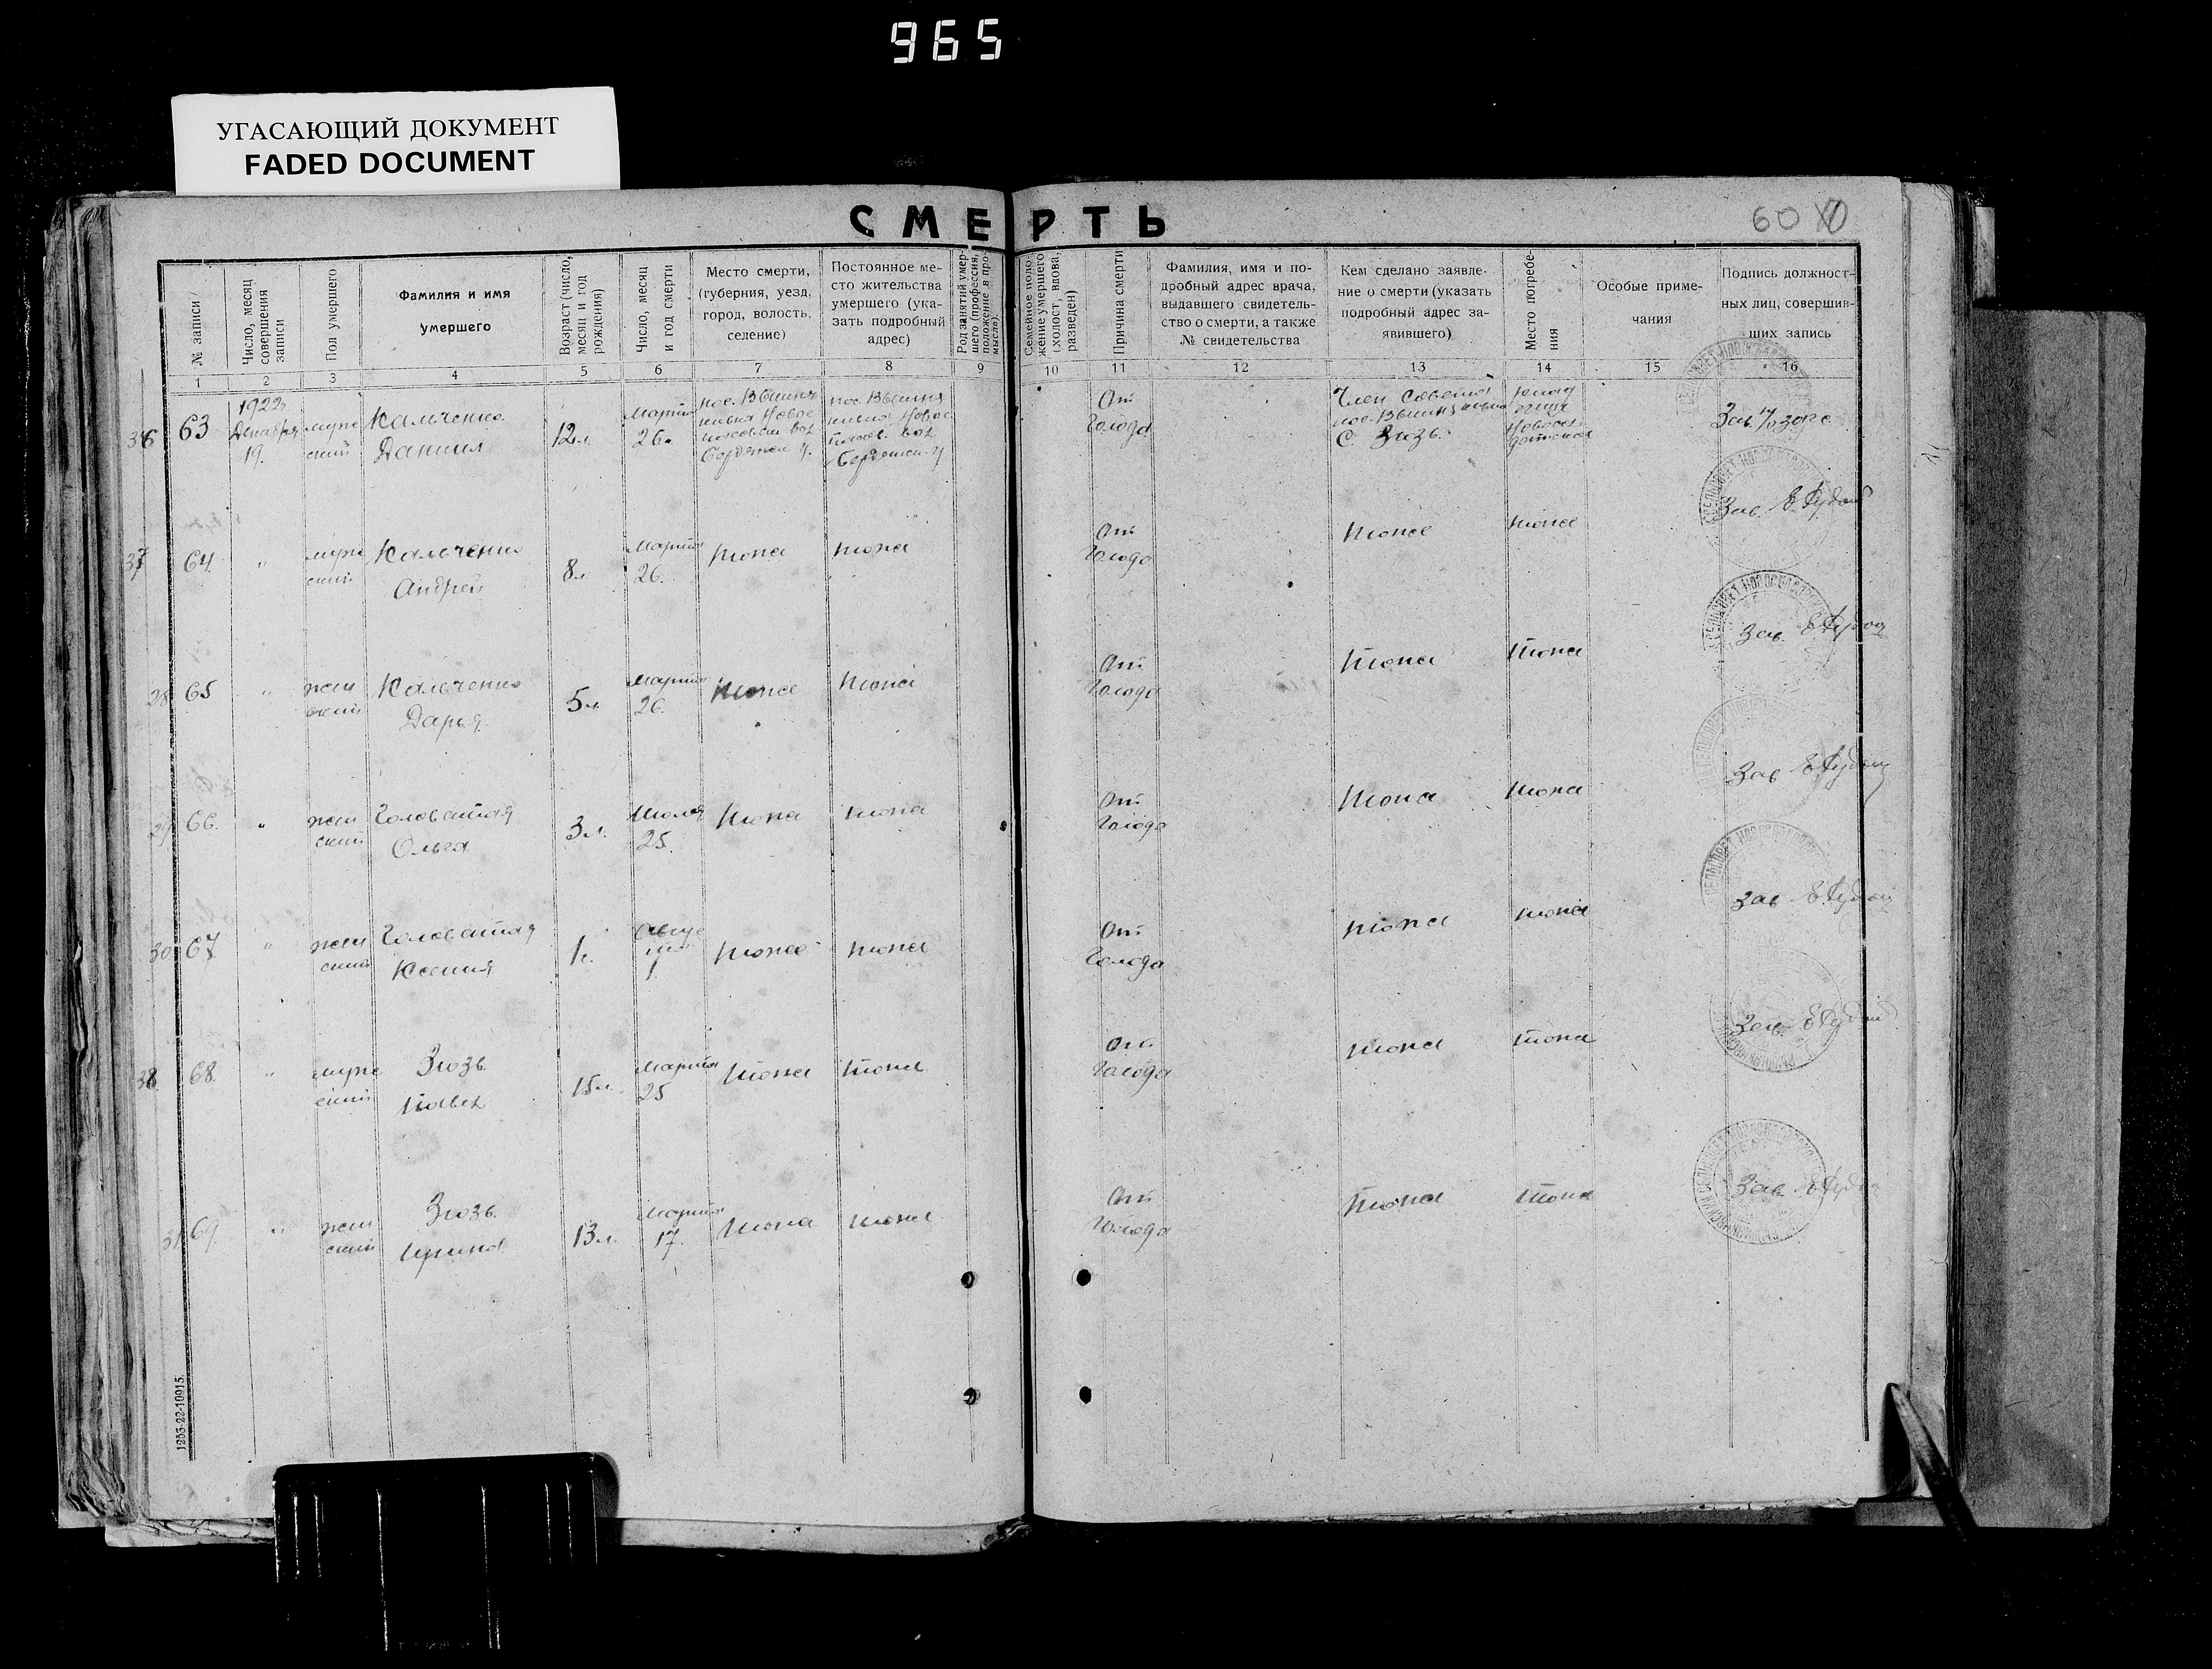 965
УГАСАЮЩИЙ ДОКУМЕНТ
FADED DOCUMENT
СМЕРТЬ
60
№ записи
Число, месяц совершения записи
Пол умершего
Фамилия и имя умершего
Возраст (число, месяц и год рождения)
Число, месяц и год смерти
Место смерти, (губерния, уезд, город, волость, селение)
Постоянное место жительства умершего (указать подробный адрес)
Род занятий умершего (профессия, положение в промысле).
Семейное положение умершего (холост, вдова, разведен)
Причина смерти
Фамилия, имя и подробный адрес врача, выдавшего свидетельство о смерти, а также № свидетельства
Кем сделано заявление о смерти (указать подробный адрес заявившего)
Место погребения
Особые примечания
Подпись должностных лиц, совершивших запись
1 2 3 4 5 6 7 8 9 10 11 12 13 14 15 16
36 63 1922г Декабря 19. мужский Кальченко Даниил 12л. Марта 26. От Голода Член Совета С. Зюзь. Зав.
37 64 " мужский Кальченко Андрей 8л. Марта 26. тоже тоже От Голода тоже тоже Зав.
28 65 " женский Кальченко Дарья 5л. Марта 26. тоже тоже От Голода тоже тоже Зав.
29 66. " женский Головатая Ольга 3л. Июля 25. тоже тоже От Голода тоже тоже Зав
30 67 " женский Головатая Ксения 1г. Август 1. тоже тоже От Голода тоже тоже Зав
38 68. " мужский Зюзь Павел 15л. Марта 25 тоже тоже От Голода тоже тоже Зав.
31 69. " женский Зюзь. Ирина 13л. Марта 17. тоже тоже От Голода тоже тоже Зав.
1253-22-10915.